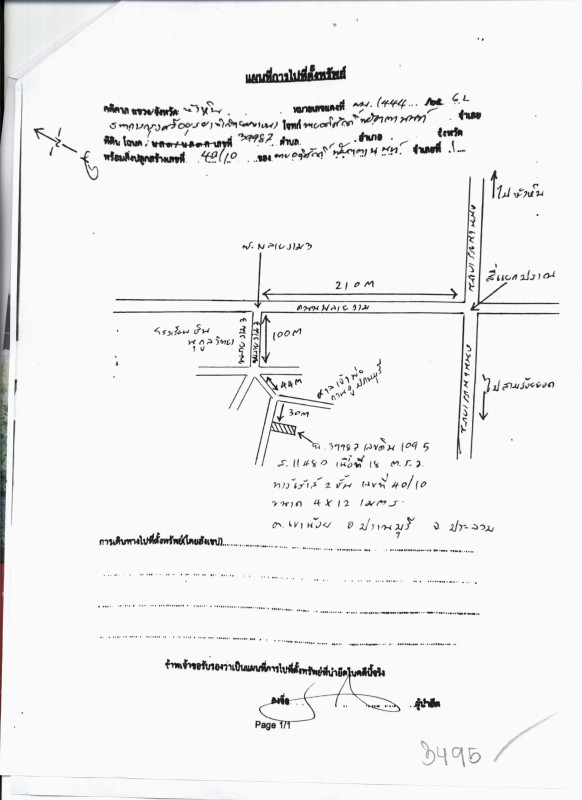 แผนที่การไปที่ตั้งทรัพย์
คดีศาล แขวง/จังหวัด หัวหิน หมายเลขแดงที่ 1444
โจทก์ จำเลย
ที่ดิน โฉนด / น.ส.๓ / น.ส.๓ ก เลขที่ 39987 ตำบล อำเภอ จังหวัด
พร้อมสิ่งปลูกสร้างเลขที่ 40/10 ของ จำเลยที่ 1
ไปหัวหิน
ซ.พลายงาม 3
210 M
สี่แยกปราณ
ถนนเพชรเกษม
ถนนพลายงาม
โรงเรียน
วิทยา
100 M
44 M
ศาลเจ้าพ่อ
กวนอู ปราณบุรี
ไปสามร้อยยอด
30 M
ฉ.39987 เลขดิน 1095
ร.11480 เนื้อที่ 18 ต.ร.ว.
ทาวน์เฮ้าส์ 2 ชั้น เลขที่ 40/10
ขนาด 4 X 12 เมตร
ต.เขาน้อย อ ปราณบุรี จ ประจวบ
การเดินทางไปที่ตั้งทรัพย์(โดยสังเขป)
ข้าพเจ้าขอรับรองว่าเป็นแผนที่การไปที่ตั้งทรัพย์ที่นำยึดในคดีนี้จริง
ลงชื่อ ผู้นำยึด
Page 1/1
3495